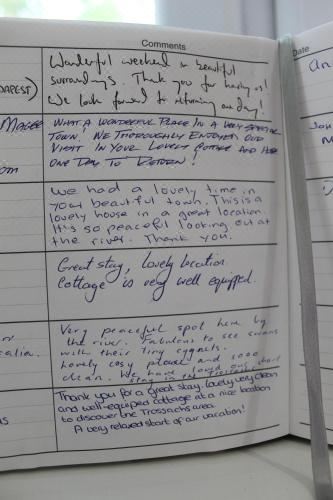 Comments
Date
Wonderful weekend in beautiful
surroundings. Thank you for having us!
We look forward to returning one day!
DAPEST)
WHAT A WONDERFUL PLACE IN A VERY SPECIAL
TOWN. WE THOROUGHLY ENJOYED OUR
VISIT IN YOUR LOVELY COTTAGE AND HOPE
ONE DAY TO RETURN!
om
we had a lovely time in
your beautiful town. This is a
lovely house in a great location.
It's so peaceful looking out at
the river. Thank you.
Great stay, lovely location.
Cottage is very well equipped.
Very peaceful spot here by
the river. Fabulous to see swans
with their tiny cygnets.
Lovely cosy place and sooo
clean. We have loved our short
stay in the
Thank you for a great stay, lovely, very clean
and well-equipped cottage at a nice location
to discover the Trossachs area.
A very relaxed start of our vacation!